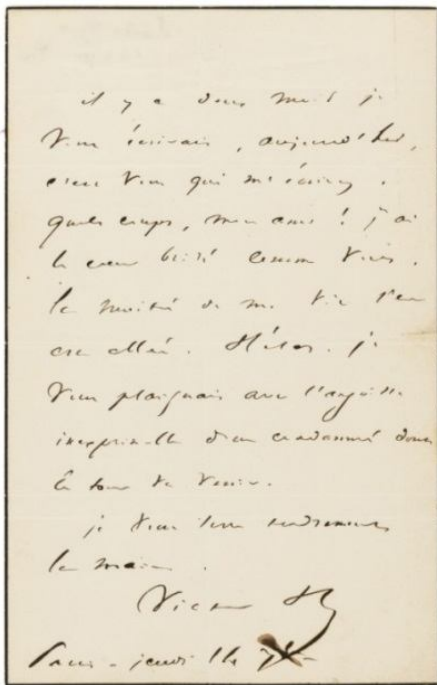 il y a deux mois je
vous écrivais, aujourd'hui,
c'est vous qui m'écrivez.
quels coups, mon ami ! j'ai
le cœur brisé comme vous.
la moitié de ma vie s'en
est allée. Hélas. je
vous plaignais avec l'angoisse
inexprimable d'un condamné dont
le tour va venir.
je vous serre tendrement
la main.
Victor H
jeudi